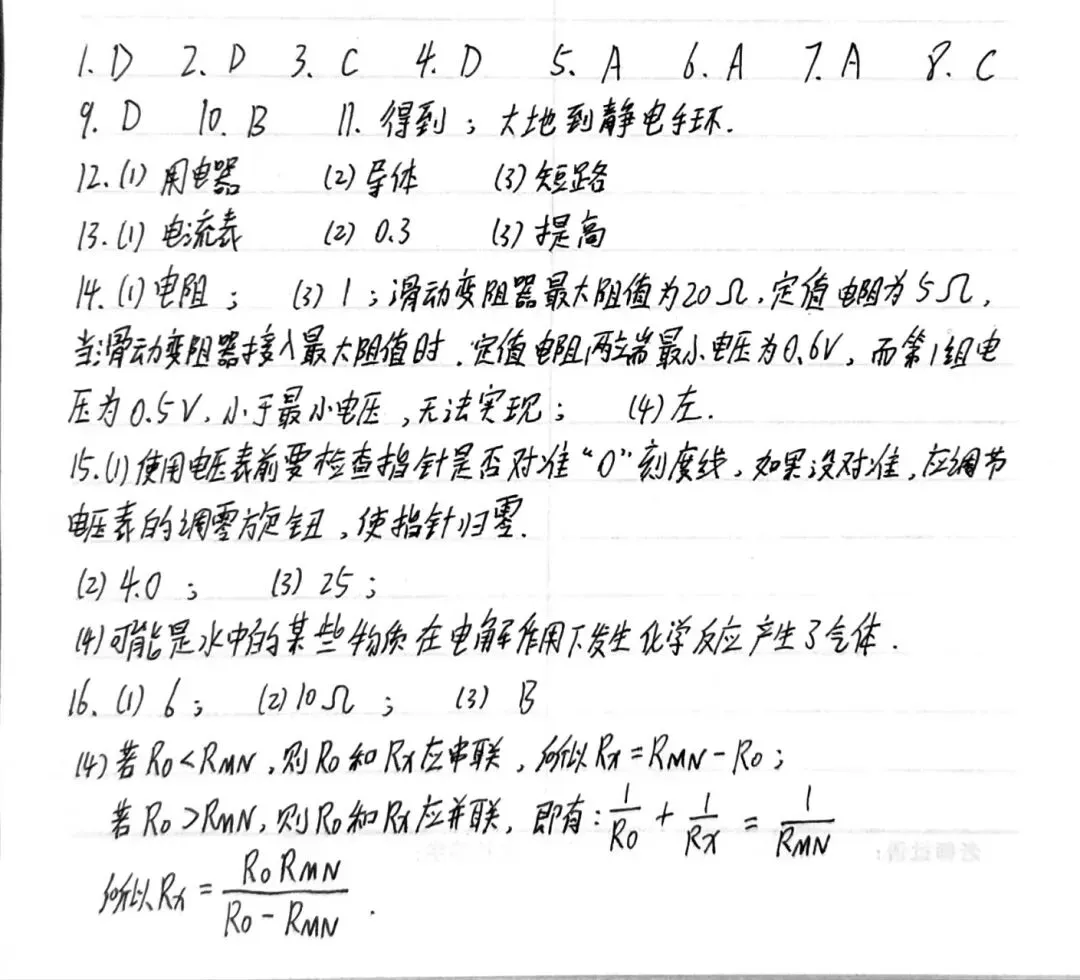 1. D 2. D 3. C 4. D 5. A 6. A 7. A 8. C
9. D 10. B 11. 得到；大地到静电手环.
12.(1) 用电器 (2) 导体 (3) 短路
13.(1) 电流表 (2) 0.3 (3) 提高
14.(1) 电阻； (3) 1；滑动变阻器最大阻值为20Ω,定值电阻为5Ω,
当滑动变阻器接入最大阻值时,定值电阻两端最小电压为0.6V,而第1组电
压为0.5V,小于最小电压,无法实现； (4) 左.
15.(1) 使用电压表前要检查指针是否对准“0”刻度线,如果没对准,应调节
电压表的调零旋钮,使指针归零.
(2) 4.0； (3) 25；
(4) 可能是水中的某些物质在电解作用下发生化学反应产生了气体.
16.(1) 6； (2) 10Ω； (3) B
(4) 若R0<RMN,则R0和RX应串联,所以RX=RMN-R0；
若R0>RMN,则R0和RX应并联,即有:1/R0+1/RX=1/RMN
所以RX=R0RMN/(R0-RMN).